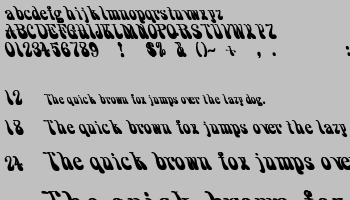 abcdefghijklmnopqrstuvwxyz
ABCDEFGHIJKLMNOPQRSTUVWXYZ
0123456789 ! $% & ()~ + , . :
12 The quick brown fox jumps over the lazy dog.
18 The quick brown fox jumps over the lazy
24 The quick brown fox jumps ove
The quick brown fox